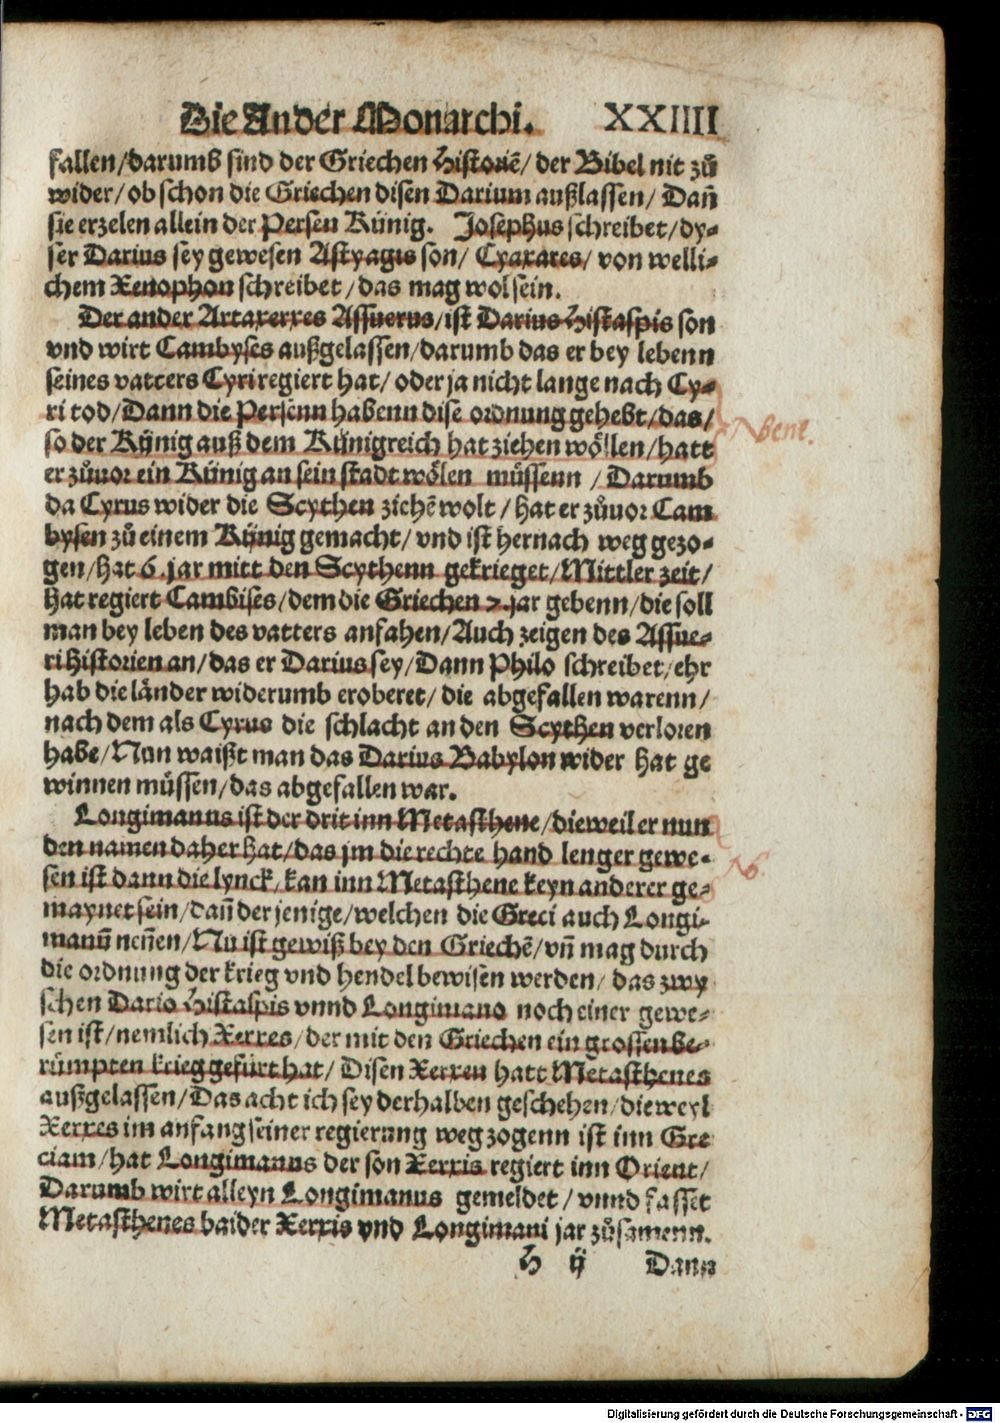 Die Ander Monarchi. XXIIII
fallen/darumb sind der Griechen Historiē/ der Bibel nit zů
wider/ ob schon die Griechen disen Darium außlassen/ Dañ
sie erzelen allein der Persen Künig. Josephus schreibet/ dy-
ser Darius sey gewesen Astyagis son/ Cyaxares/ von welli-
chem Xenophon schreibet/das mag wol sein.
Der ander Artaxerxes Assuerus/ist Darius Histaspis son
vnd wirt Cambyses außgelassen/darumb das er bey lebenn
seines vatters Cyri regiert hat/ oder ja nicht lange nach Cy-
ri tod/Dann die Persenn habenn dise ordnung gehebt/das/
so der Künig auß dem Künigreich hat ziehen wöllen/hatt
er zůuor ein Künig an sein stadt wölen müssenn /Darumb
da Cyrus wider die Scythen ziehē wolt/hat er zůuor Cam
bysen zů einem Künig gemacht/ vnd ist hernach weg gezo-
gen/hat 6.jar mitt den Scythenn gekrieget/Mittler zeit/
hat regiert Cambises/dem die Griechen 7.jar gebenn/die soll
man bey leben des vatters anfahen/Auch zeigen des Assue-
ri Historien an/das er Darius sey/Dann Philo schreibet/ehr
hab die länder widerumb eroberet/ die abgefallen warenn/
nach dem als Cyrus die schlacht an den Scythen verloren
habe/Nun waißt man das Darius Babylon wider hat ge
winnen müssen/das abgefallen war.
Longimanus ist der drit inn Metasthene/dieweil er nun
den namen daher hat/das jm die rechte hand lenger gewe-
sen ist dann die lynck/kan inn Metasthene keyn anderer ge-
maynet sein/dañ der jenige/welchen die Greci auch Longi-
manū neñen/Nu ist gewiß bey den Griechē/vñ mag durch
die ordnung der krieg vnd hendel bewisen werden/das zwy
schen Dario Histaspis vnnd Longimano noch einer gewe-
sen ist/nemlich Xerxes/der mit den Griechen ein grossen be-
rümpten krieg gefürt hat/Disen Xerxen hatt Metasthenes
außgelassen/Das acht ich sey derhalben geschehen/die weyl
Xerxes im anfang seiner regierung weg zogenn ist inn Gre
ciam/hat Longimanus der son Xerxis regiert inn Orient/
Darumb wirt alleyn Longimanus gemeldet/vnnd fasset
Metasthenes baider Xerxis vnd Longimani jar zůsamenn.
H ij Dann
NBene.
NB.
Digitalisierung gefördert durch die Deutsche Forschungsgemeinschaft - DFG